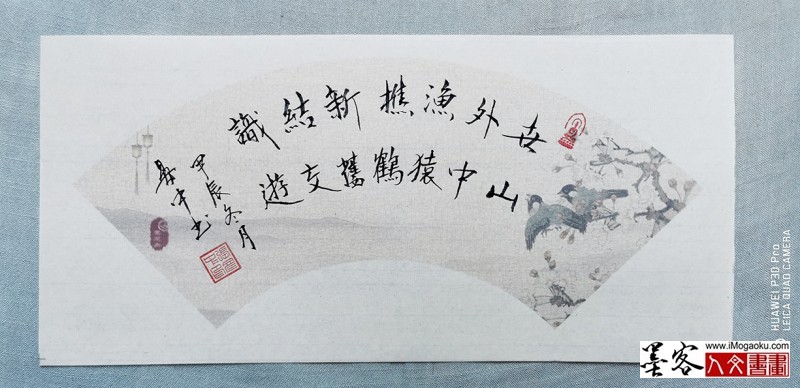 世外漁樵新結識
山中猿鶴舊交遊
甲辰冬月
中书
HUAWEI P30 Pro
LEICA QUAD CAMERA
www.iMogaoku.com
墨客人文書畫